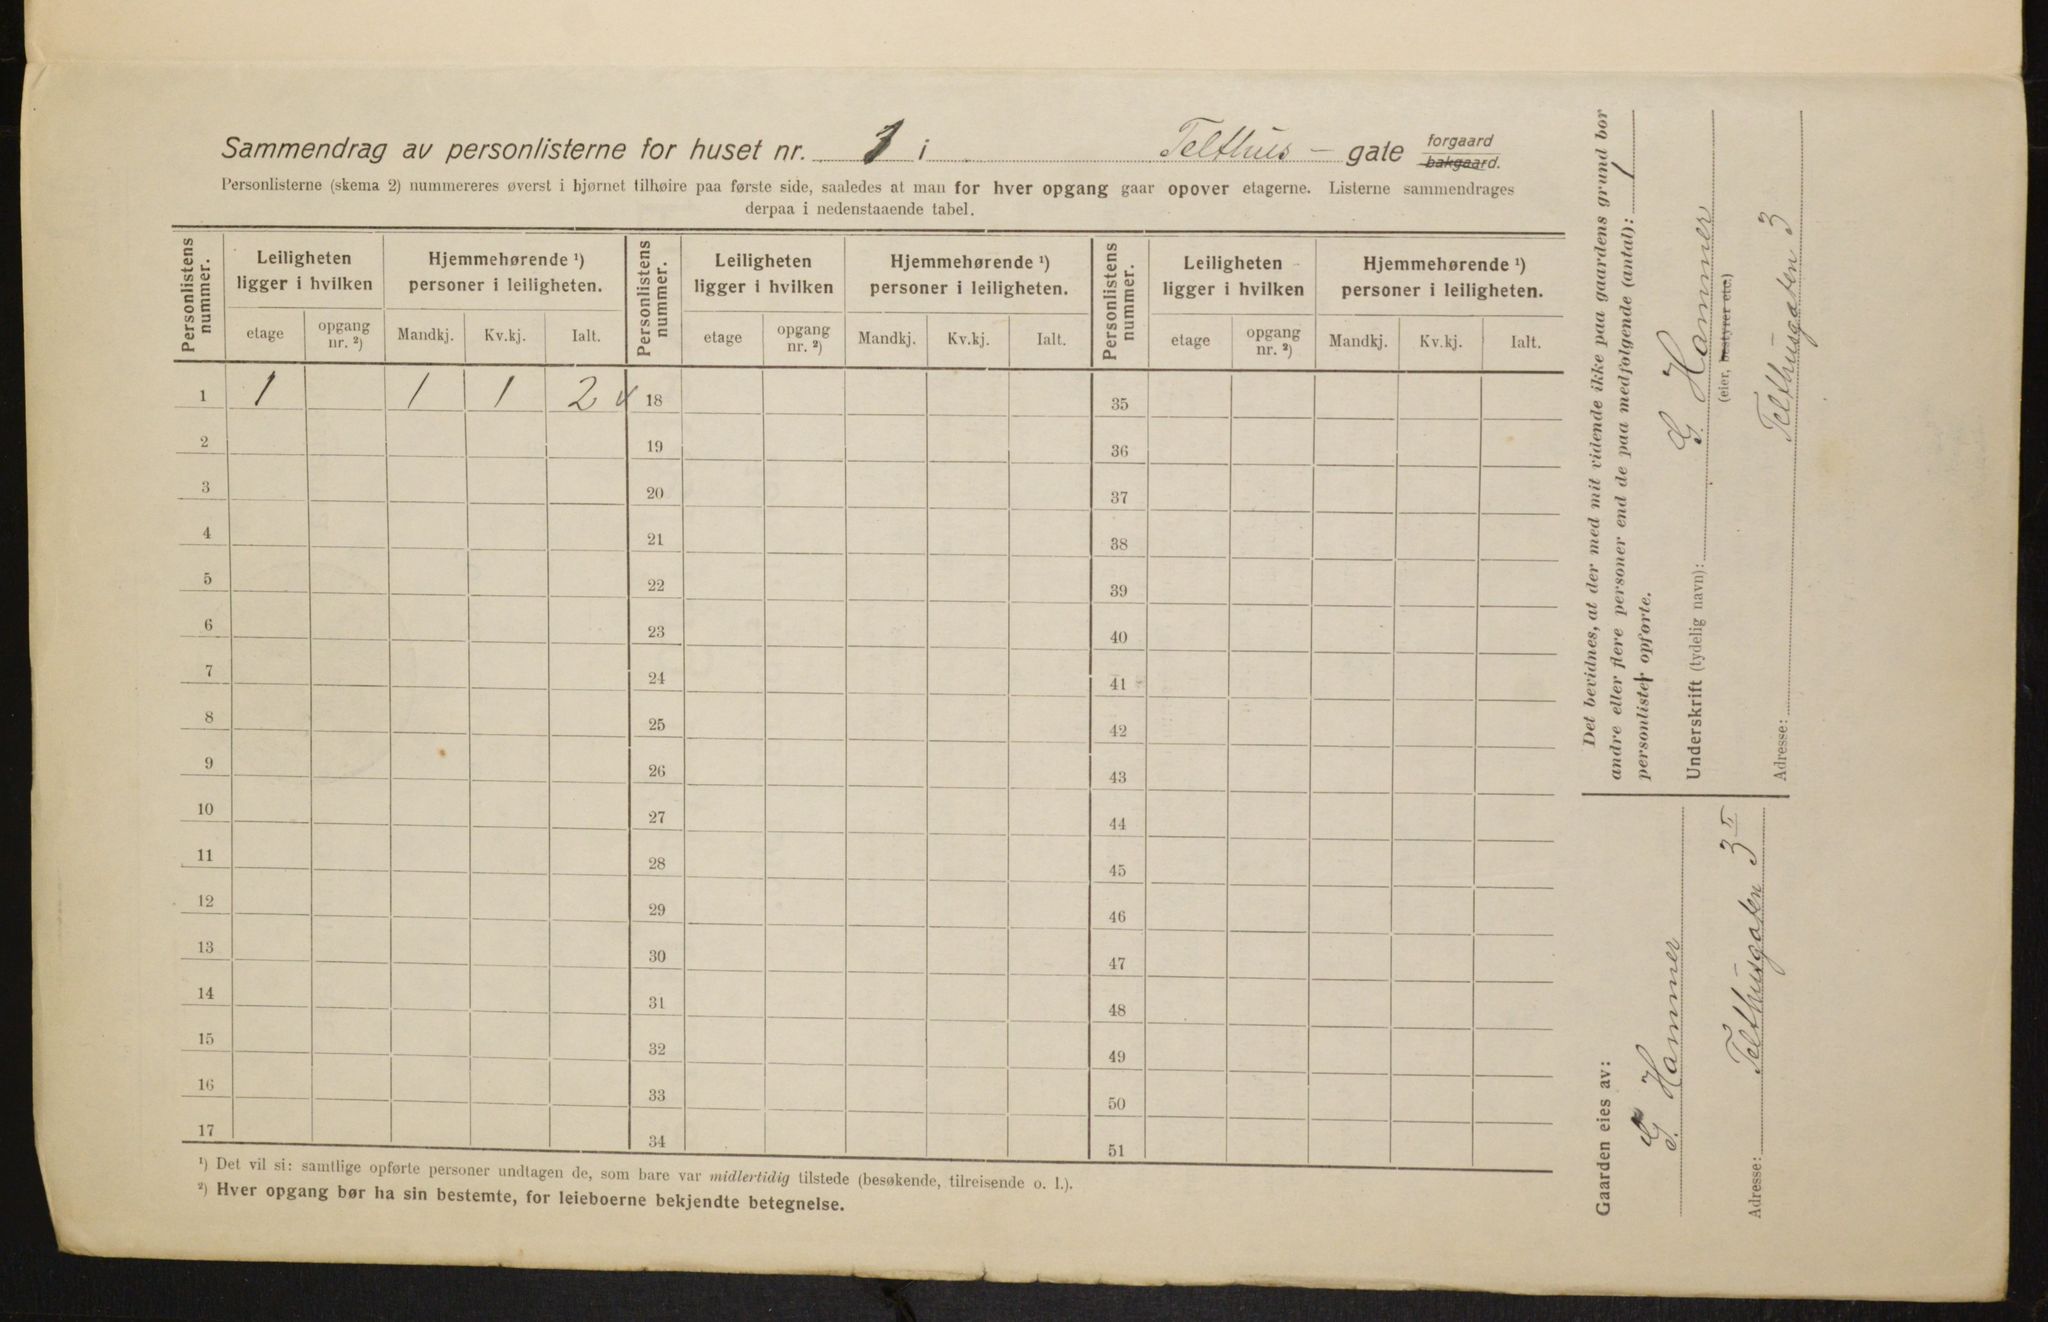 Sammendrag av personlisterne for huset nr. 3 i Telthus - gate forgaard bakgaard.
Personlisterne (skema 2) nummereres øverst i hjørnet tilhøire paa første side, saaledes at man for hver opgang gaar opover etagerne. Listerne sammendrages
derpaa i nedenstaaende tabel.
Personlistens nummer. Leiligheten ligger i hvilken Hjemmehørende ¹) personer i leiligheten. Personlistens nummer. Leiligheten ligger i hvilken Hjemmehørende ¹) personer i leiligheten. Personlistens nummer. Leiligheten ligger i hvilken Hjemmehørende ¹) personer i leiligheten.
etage opgang nr. ²) Mandkj. Kv.kj. Ialt. etage opgang nr. ²) Mandkj. Kv.kj. Ialt. etage opgang nr. ²) Mandkj. Kv.kj. Ialt.
1 1 1 1 2 18 35
2 19 36
3 20 37
4 21 38
5 22 39
6 23 40
7 24 41
8 25 42
9 26 43
10 27 44
11 28 45
12 29 46
13 30 47
14 31 48
15 32 49
16 33 50
17 34 51
¹) Det vil si: samtlige opførte personer undtagen de, som bare var midlertidig tilstede (besøkende, tilreisende o. l.).
²) Hver opgang bør ha sin bestemte, for leieboerne bekjendte betegnelse.
Det bevidnes, at der med mit vidende ikke paa gaardens grund bor
andre eller flere personer end de paa medfølgende (antal): 1
personlister opførte.
Underskrift (tydelig navn): G. Hammer
(eier, bestyrer etc.)
Adresse: Telthusgaten 3
Gaarden eies av:
G. Hammer
Adresse: Telthusgaten 3 II